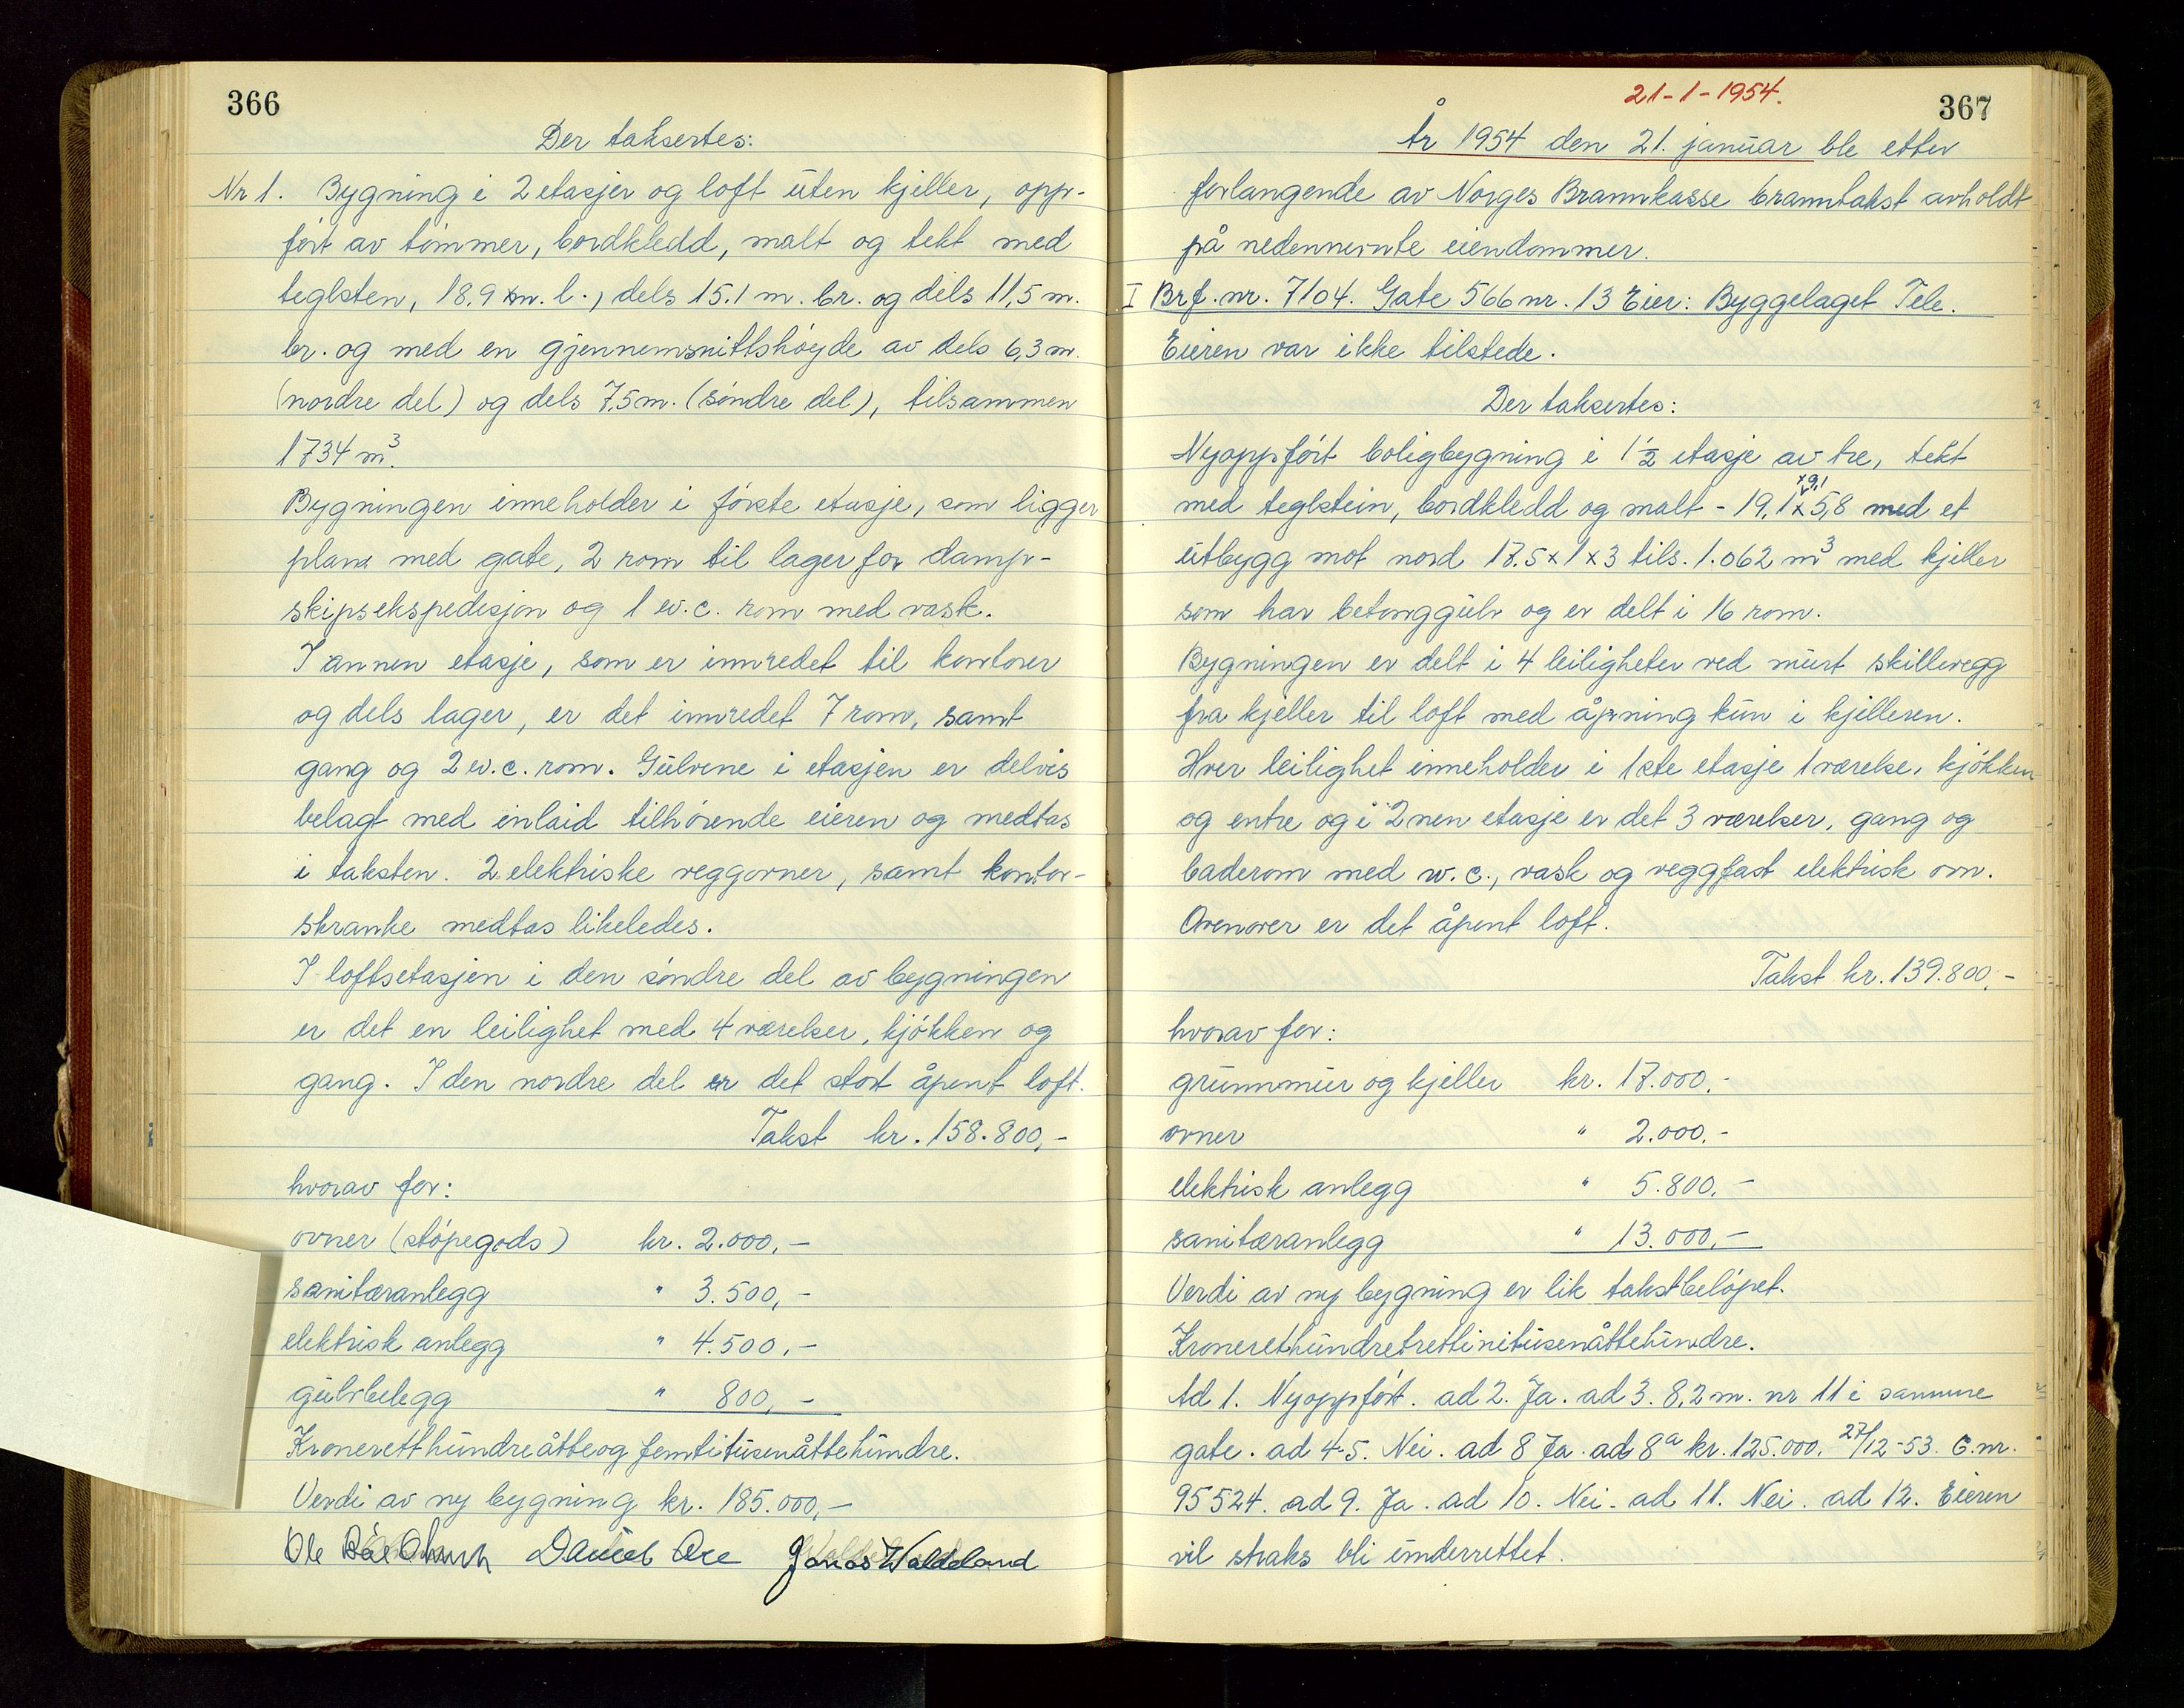 366
Der taksertes:
Nr 1. Bygning i 2 etasjer og loft uten kjeller, opp-
ført av tømmer, bordkledd, malt og tekt med
teglsten, 18.9 m. l., dels 15.1 m. br. og dels 11,5 m.
br. og med en gjennemsnittshøyde av dels 6,3 m.
(nordre del) og dels 7,5 m. (søndre del), tilsammen
1734 m³.
Bygningen inneholder i første etasje, som ligger
plana med gate, 2 rom til lager for damp-
skipsekspedisjon og 1 w.c. rom med vask.
I annen etasje, som er innredet til kontorer
og dels lager, er det innredet 7 rom, samt
gang og 2 w.c. rom. Gulvene i etasjen er delvis
belagt med inlaid tilhørende eieren og medtas
i taksten. 2 elektriske veggovner, samt kontor-
skranke medtas likeledes.
I loftsetasjen i den søndre del av bygningen
er det en leilighet med 4 værelser, kjøkken og
gang. I den nordre del er det stort åpent loft.
Takst kr. 158.800,-
hvorav for:
ovner (støpegods) kr. 2.000,-
sanitæranlegg " 3.500,-
elektrisk anlegg " 4.500,-
gulvbelegg " 800,-
Kroneretthundreåtteogfemtitusenåttehundre.
Verdi av ny bygning kr. 185.000,-
Ole Daniel Jonas Waldeland
21-1-1954.
367
År 1954 den 21. januar ble etter
forlangende av Norges Brannkasse branntakst avholdt
på nedennevnte eiendommer.
I Brf. nr. 7104. Gate 566 nr. 13 Eier: Byggelaget Tele.
Eieren var ikke tilstede.
Der taksertes:
Nyoppført boligbygning i 1½ etasje av tre, tekt
med teglstein, bordkledd og malt - 19,1 x 9,1 x 5,8 med et
utbygg mot nord 17.5 x 1 x 3 tils. 1.062 m³ med kjeller
som har betonggulv og er delt i 16 rom.
Bygningen er delt i 4 leiligheter ved murt skillevegg
fra kjeller til loft med åpning kun i kjelleren.
Hver leilighet inneholder i 1ste etasje 1 værelse, kjøkken
og entre og i 2nen etasje er det 3 værelser, gang og
baderom med w.c., vask og veggfast elektrisk ovn.
Ovenover er det åpent loft.
Takst kr. 139.800,-
hvorav for:
grunnmur og kjeller kr. 17.000,-
ovner " 2.000.-
elektrisk anlegg " 5.800,-
sanitæranlegg " 13.000,-
Verdi av ny bygning er lik takstbeløpet.
Kronerethundretrettinitusenåttehundre.
Ad 1. Nyoppført. ad 2. Ja. ad 3. 8,2 m. nr 11 i samme
gate. ad 4-5. Nei. ad 8 Ja. ad 8ª kr. 125.000. 27/12-53. G.nr.
95524. ad 9. Ja. ad 10. Nei. ad 11. Nei. ad 12. Eieren
vil straks bli underrettet.